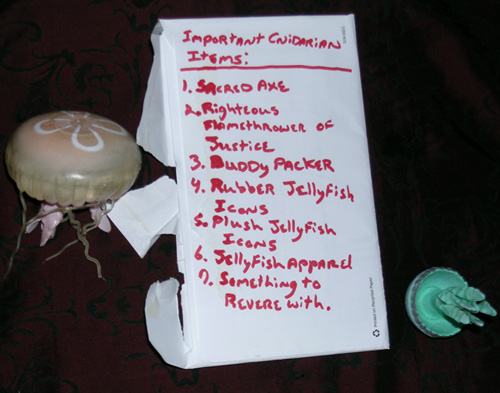 Important Cnidarian
Items:
1. Sacred Axe
2. Righteous
Flamethrower of
Justice
3. Buddy Packer
4. Rubber Jellyfish
Icons
5. Plush Jellyfish
Icons
6. Jellyfish Apparel
7. Something to
Revere with.
Printed on Recycled Paper